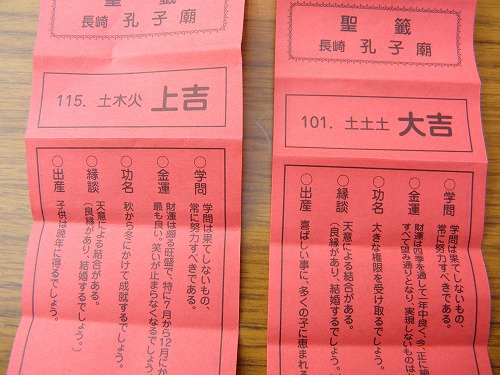 聖籤
長崎 孔子廟
115. 土木火 上吉
○学問
学問は果てしないもの、
常に努力すべきである。
○金運
財運は頗る旺盛で、特に7月から12月にか
最も良い。笑いが止まらなくなるでしょう。
○功名
秋から冬にかけて成就するでしょう。
○縁談
天意による結合がある。
（良縁があり、結婚するでしょう。）
○出産
子供は晩年に得るでしょう。
聖籤
長崎 孔子廟
101. 土土土 大吉
○学問
学問は果てしないもの、
常に努力すべきである。
○金運
財運は四季を通して一年中良く、今、正に
すべて望み通りとなり、実現しないものは
○功名
大きな権限を受け取るでしょう。
○縁談
天意による結合がある。
（良縁があり、結婚するでしょう。
○出産
喜ばしい事に、多くの子に恵まれる